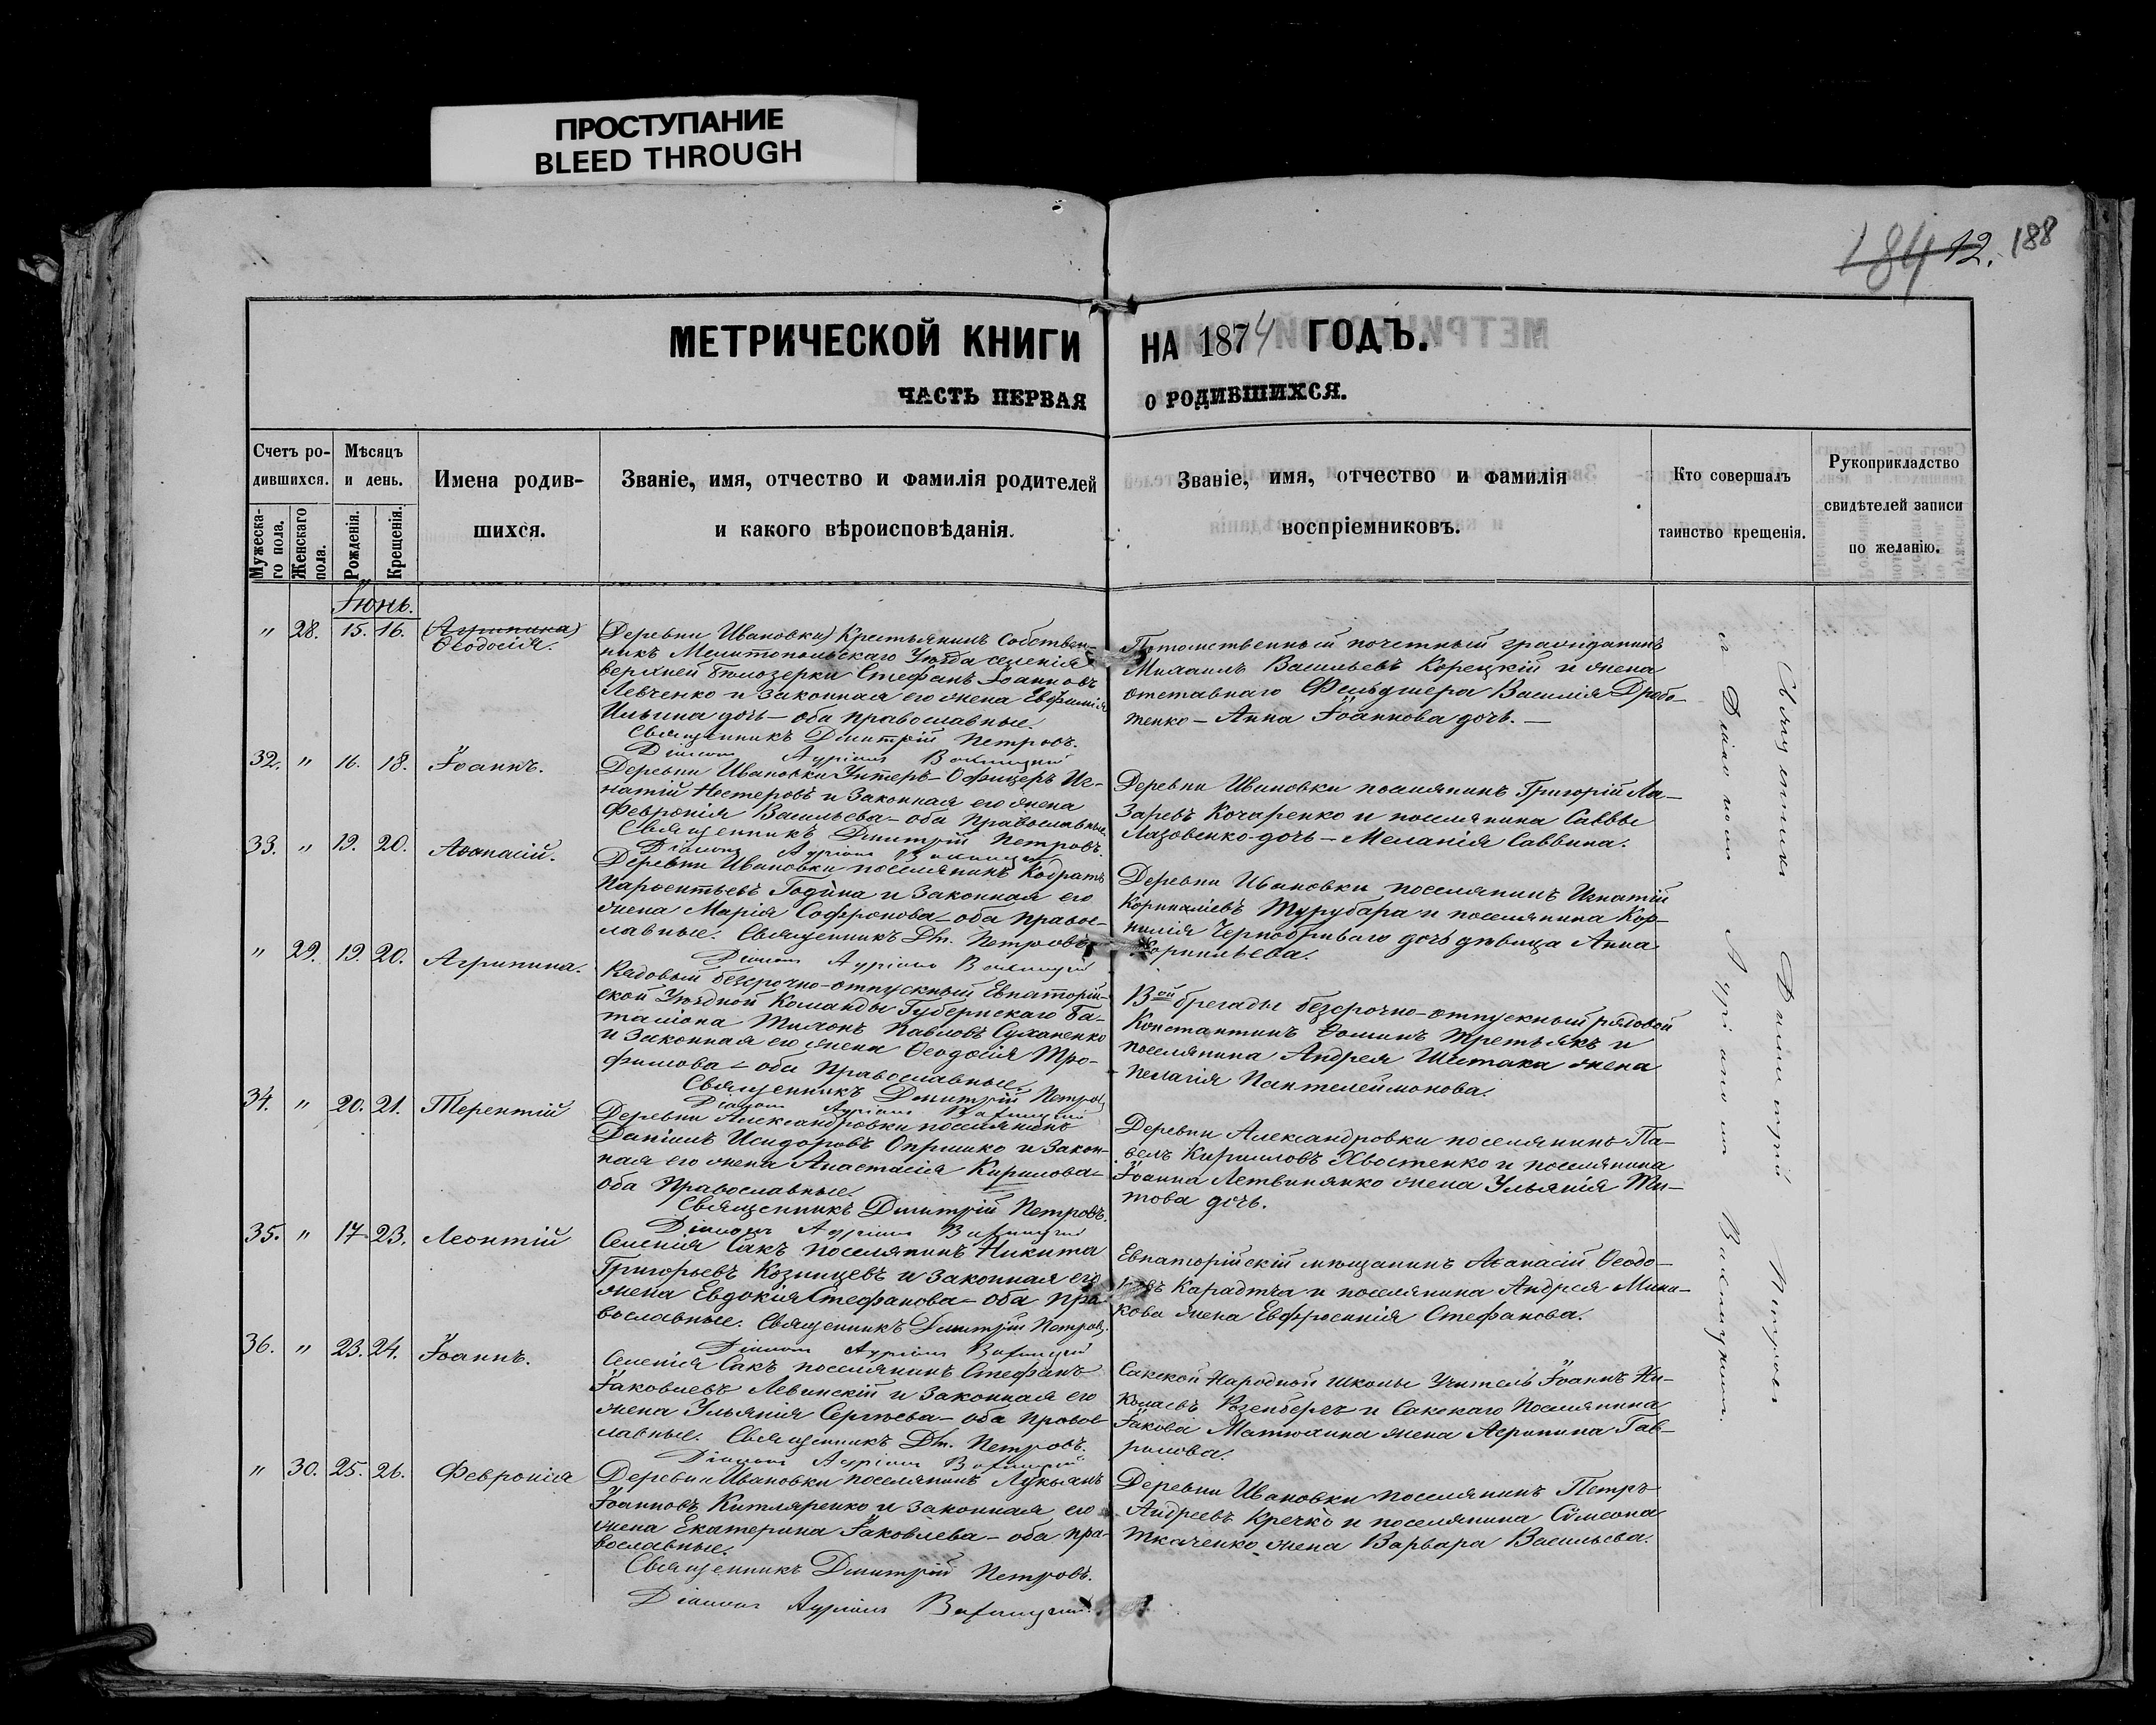 ПРОСТУПАНИЕ
BLEED THROUGH
184 12. 188
МЕТРИЧЕСКОЙ КНИГИ НА 1874 ГОДЪ.
ЧАСТЬ ПЕРВАЯ О РОДИВШИХСЯ.
Счетъ ро-
дившихся.
Мужеска-
го пола.
Женскаго
пола.
Мѣсяцъ
и день.
Рожденія.
Крещенія.
Имена родив-
шихся.
Званіе, имя, отчество и фамилія родителей
и какого вѣроисповѣданія.
Званіе, имя, отчество и фамилія
воспріемниковъ.
Кто совершалъ
таинство крещенія.
Рукоприкладство
свидѣтелей записи
по желанію.
Іюнь.
" 28. 15. 16. (Агрипина)
Ѳеодосія.
(Деревни Ивановки) Крестьянинъ Собствен-
никъ Мелитопольскаго Уѣзда селенія
верхней Бѣлозерки Стефанъ Іоанновъ
Левченко и законная его жена Евфимія
Ильина дочь – оба православные.
Священникъ Димитрій Петровъ.
Потомственный почетный гражданинъ
Михаилъ Васильевъ Корецкій и жена
отставнаго Фельдшера Василія Дребо-
тенко – Анна Іоаннова дочь. –
32. " 16. 18. Іоаннъ.
Деревни Ивановки Унтеръ-Офицеръ Иг-
натій Нестеровъ и Законная его жена
Февронія Васильева – оба Православные.
Священникъ Димитрій Петровъ.
Деревни Ивановки поселянинъ Григорій Ла-
заревъ Кочаренко и поселянина Саввы
Лазовенко-дочь – Меланія Саввина.
33. " 19. 20. Аѳанасій.
Деревни Ивановки поселянинъ Кодратъ
Парѳентьевъ Година и Законная его
жена Марія Софронова – оба Правос-
лавные. Священникъ Дм. Петровъ.
Деревни Ивановки поселянинъ Игнатій
Корниліевъ Турубара и поселянина Кор-
нилія Чернобриваго дочь дѣвица Анна
Корнильева.
" 29. 19. 20. Агрипина.
Рядовый безсрочно-отпускный Евпаторій-
ской Уѣздной Команды Губернскаго Ба-
таліона Тихонъ Павловъ Суханенко
и Законная его жена Ѳеодосія Тро-
фимова – оба Православные.
Священникъ Димитрій Петровъ
13ой бригады безсрочно-отпускный рядовой
Константинъ Ѳоминъ Третьякъ и
поселянина Андрея Шестака жена
Пелагія Пантелеймонова.
34. " 20. 21. Терентій
Деревни Александровки поселянинъ
Даніилъ Исидоровъ Опришко и Закон-
ная его жена Анастасія Кирилова –
оба Православные.
Священникъ Димитрій Петровъ.
Деревни Александровки поселянинъ Па-
велъ Кирилловъ Хвостенко и поселянина
Іоанна Летвинянко жена Ульянія Ти-
това дочь.
35. " 17. 23. Леонтій
Селенія Сакъ поселянинъ Никита
Григорьевъ Козинцевъ и законная его
жена Евдокія Стефанова – оба пра-
вославные. Священникъ Димитрій Петровъ.
Евпаторійскій мѣщанинъ Аѳанасій Ѳеодо-
ровъ Карадтча и поселянина Андрея Мина-
кова жена Евфросинія Стефанова.
36. " 23. 24. Іоаннъ.
Селенія Сакъ поселянинъ Стефанъ
Іаковлевъ Левинскій и Законная его
жена Ульянія Сергѣева – оба правос-
лавные. Священникъ Дм. Петровъ.
Сакской Народной школы Учитель Іоаннъ Ни-
колаевъ Розенбергъ и Сакскаго Поселянина
Іакова Матюхина жена Агрипина Гав-
рилова.
" 30. 25. 26. Февронія
Деревни Ивановки поселянинъ Лукьянъ
Іоанновъ Китляренко и законная его
жена Екатерина Іаковлева – оба пра-
вославные.
Священникъ Димитрій Петровъ.
Деревни Ивановки поселянинъ Петръ
Андреевъ Кречко и поселянина Сѵмеона
Ткаченко жена Варвара Васильева.
Священникъ Димитрій Петровъ